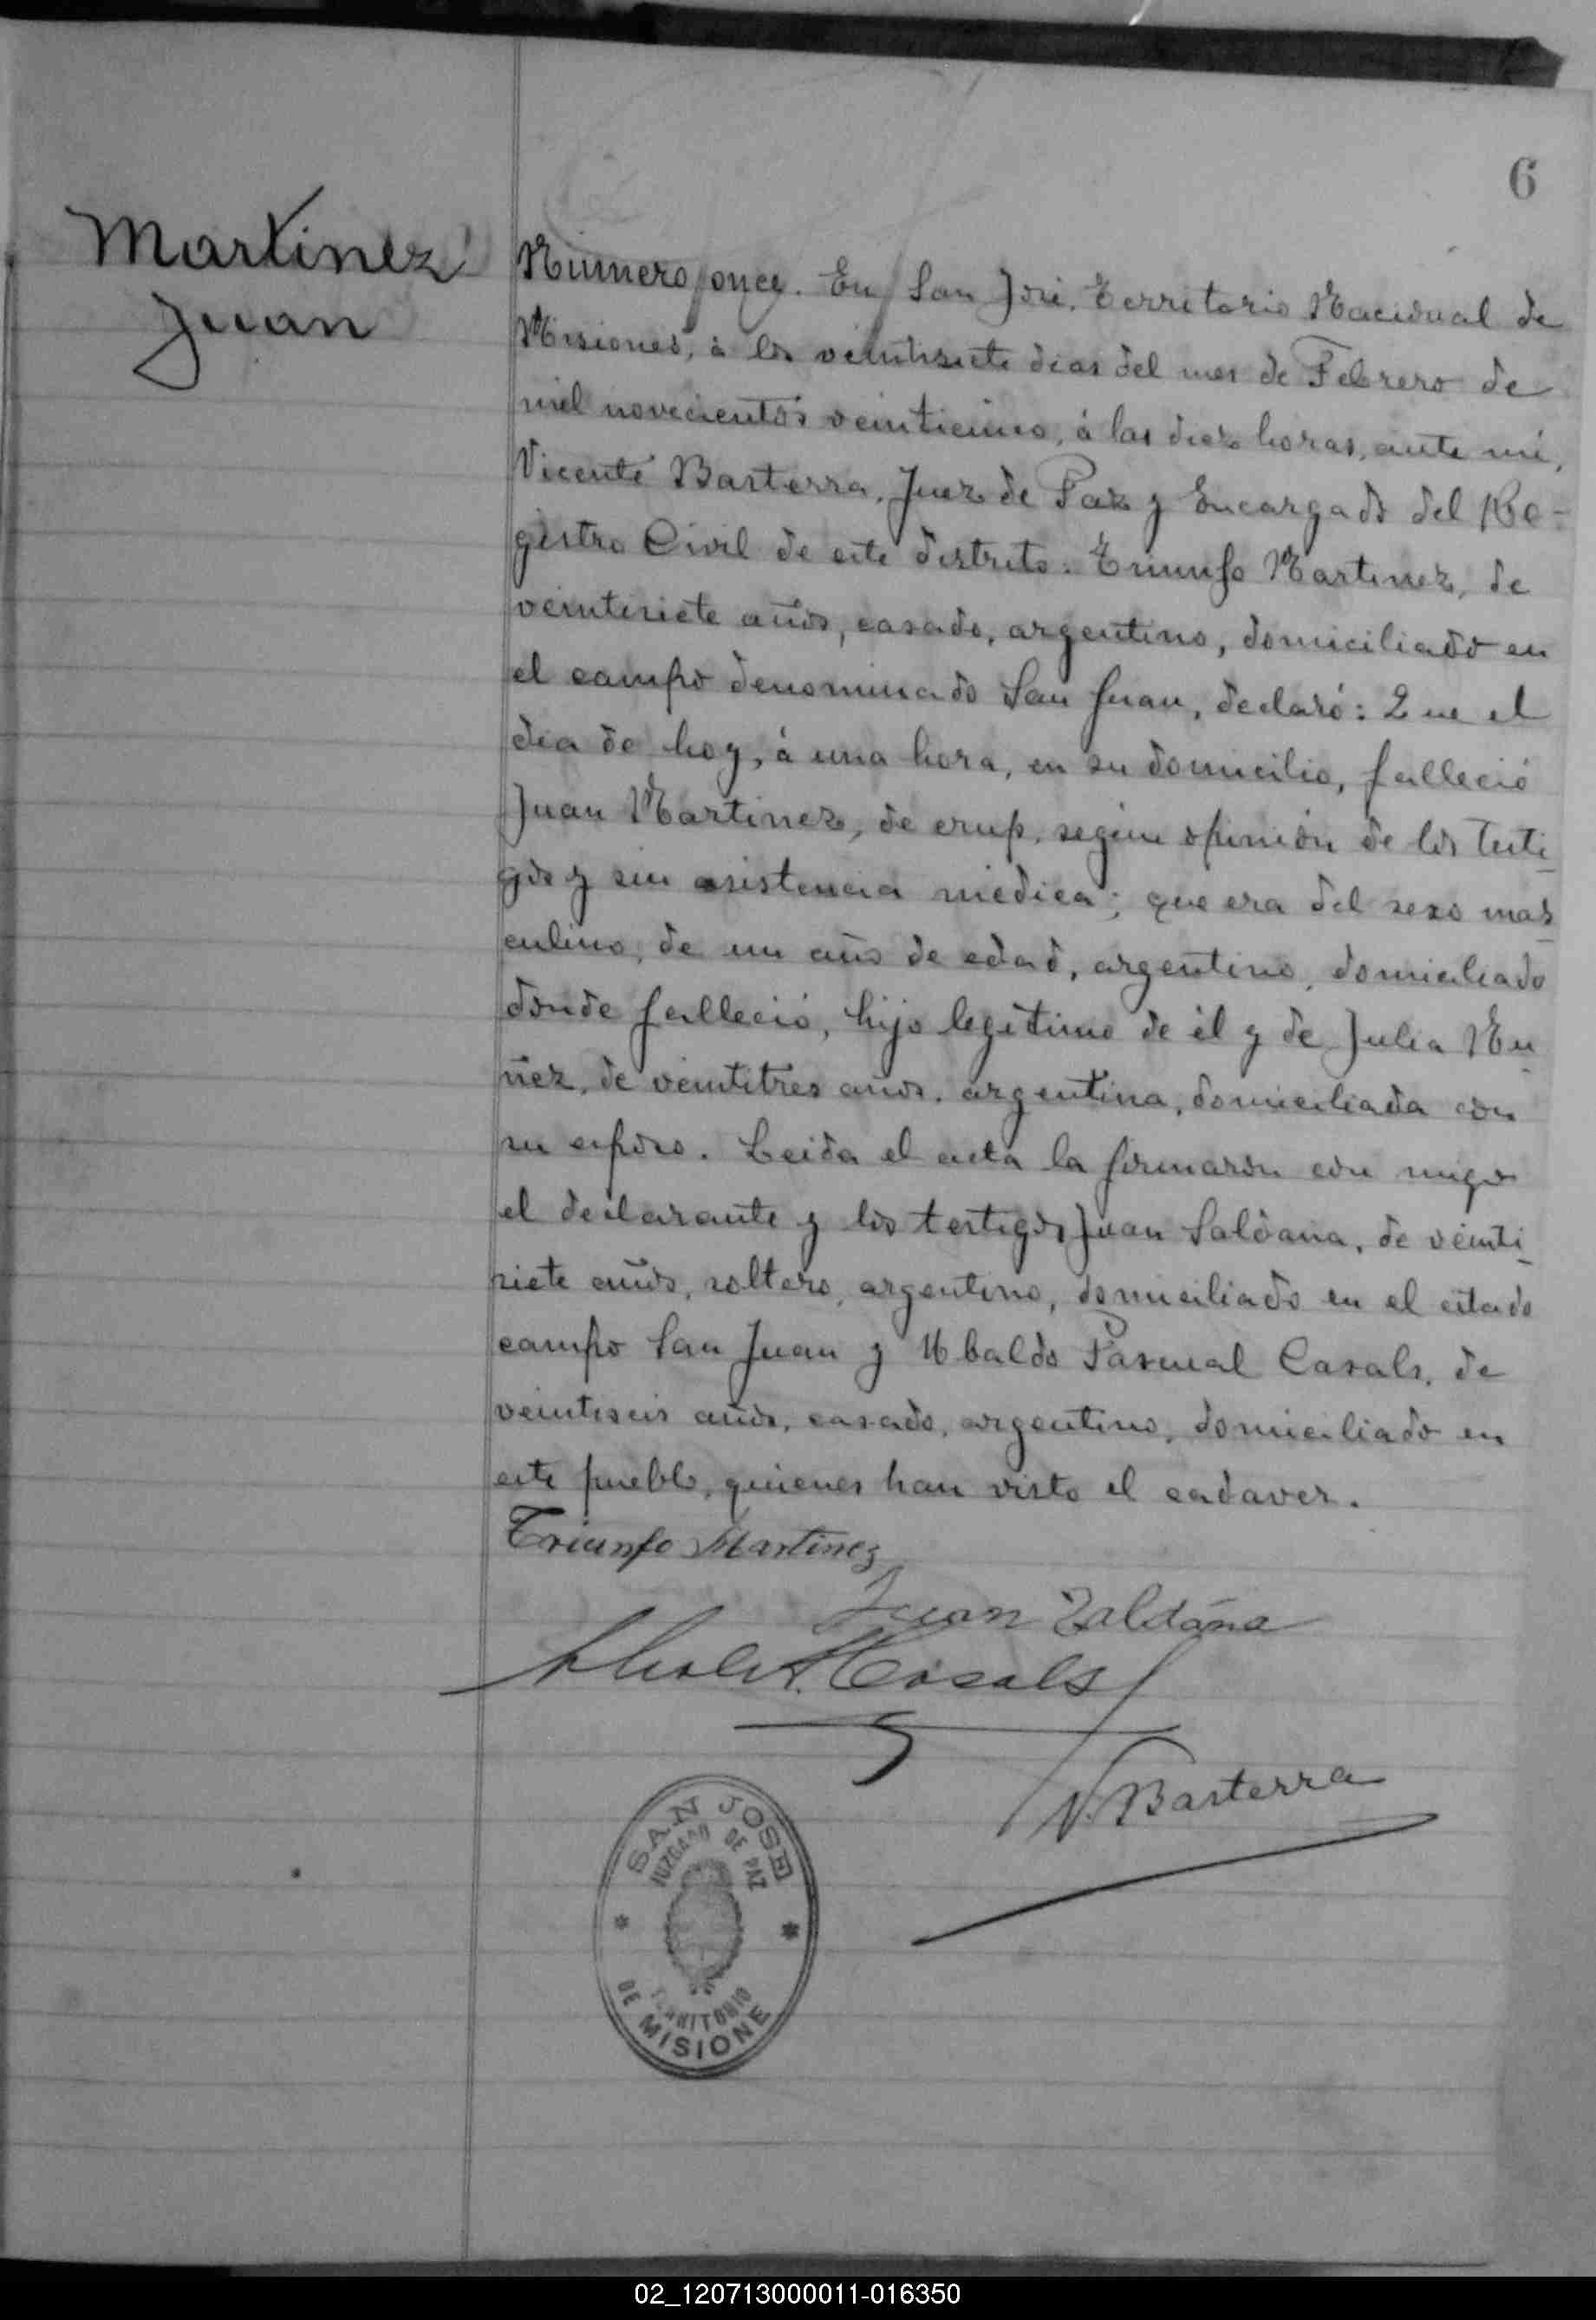 6
Martinez
Juan
Número once. En San José, Territorio Nacional de
Misiones, á los veintisiete dias del mes de Febrero de
mil novecientos veinticinco, á las diez horas, ante mi,
Vicente Basterra, Juez de Paz y Encargado del Re-
gistro Civil de este distrito. Triunfo Martinez, de
veintisiete años, casado, argentino, domiciliado en
el campo denominado San Juan, declaró: Que el
dia de hoy, á una hora, en su domicilio, falleció
Juan Martinez, de crup, según opinión de los testi
gos y sin asistencia médica; que era del sexo mas
culino, de un año de edad, argentino, domiciliado
donde falleció, hijo legítimo de él y de Julia Nu
ñez, de veintitres años, argentina, domiciliada con
su esposo. Leida el acta la firmaron con migo
el declarante y los testigos Juan Saldana, de veinti
siete años, soltero, argentino, domiciliado en el citado
campo San Juan y Ubaldo Pascual Casals, de
veintiseis años, casado, argentino, domiciliado en
este pueblo, quienes han visto el cadaver.
Triunfo Martinez
Juan Zaldána
Casals
V. Basterra
SAN JOSE
JUZGADO DE PAZ
TERRITORIO
DE MISIONE
02_120713000011-016350